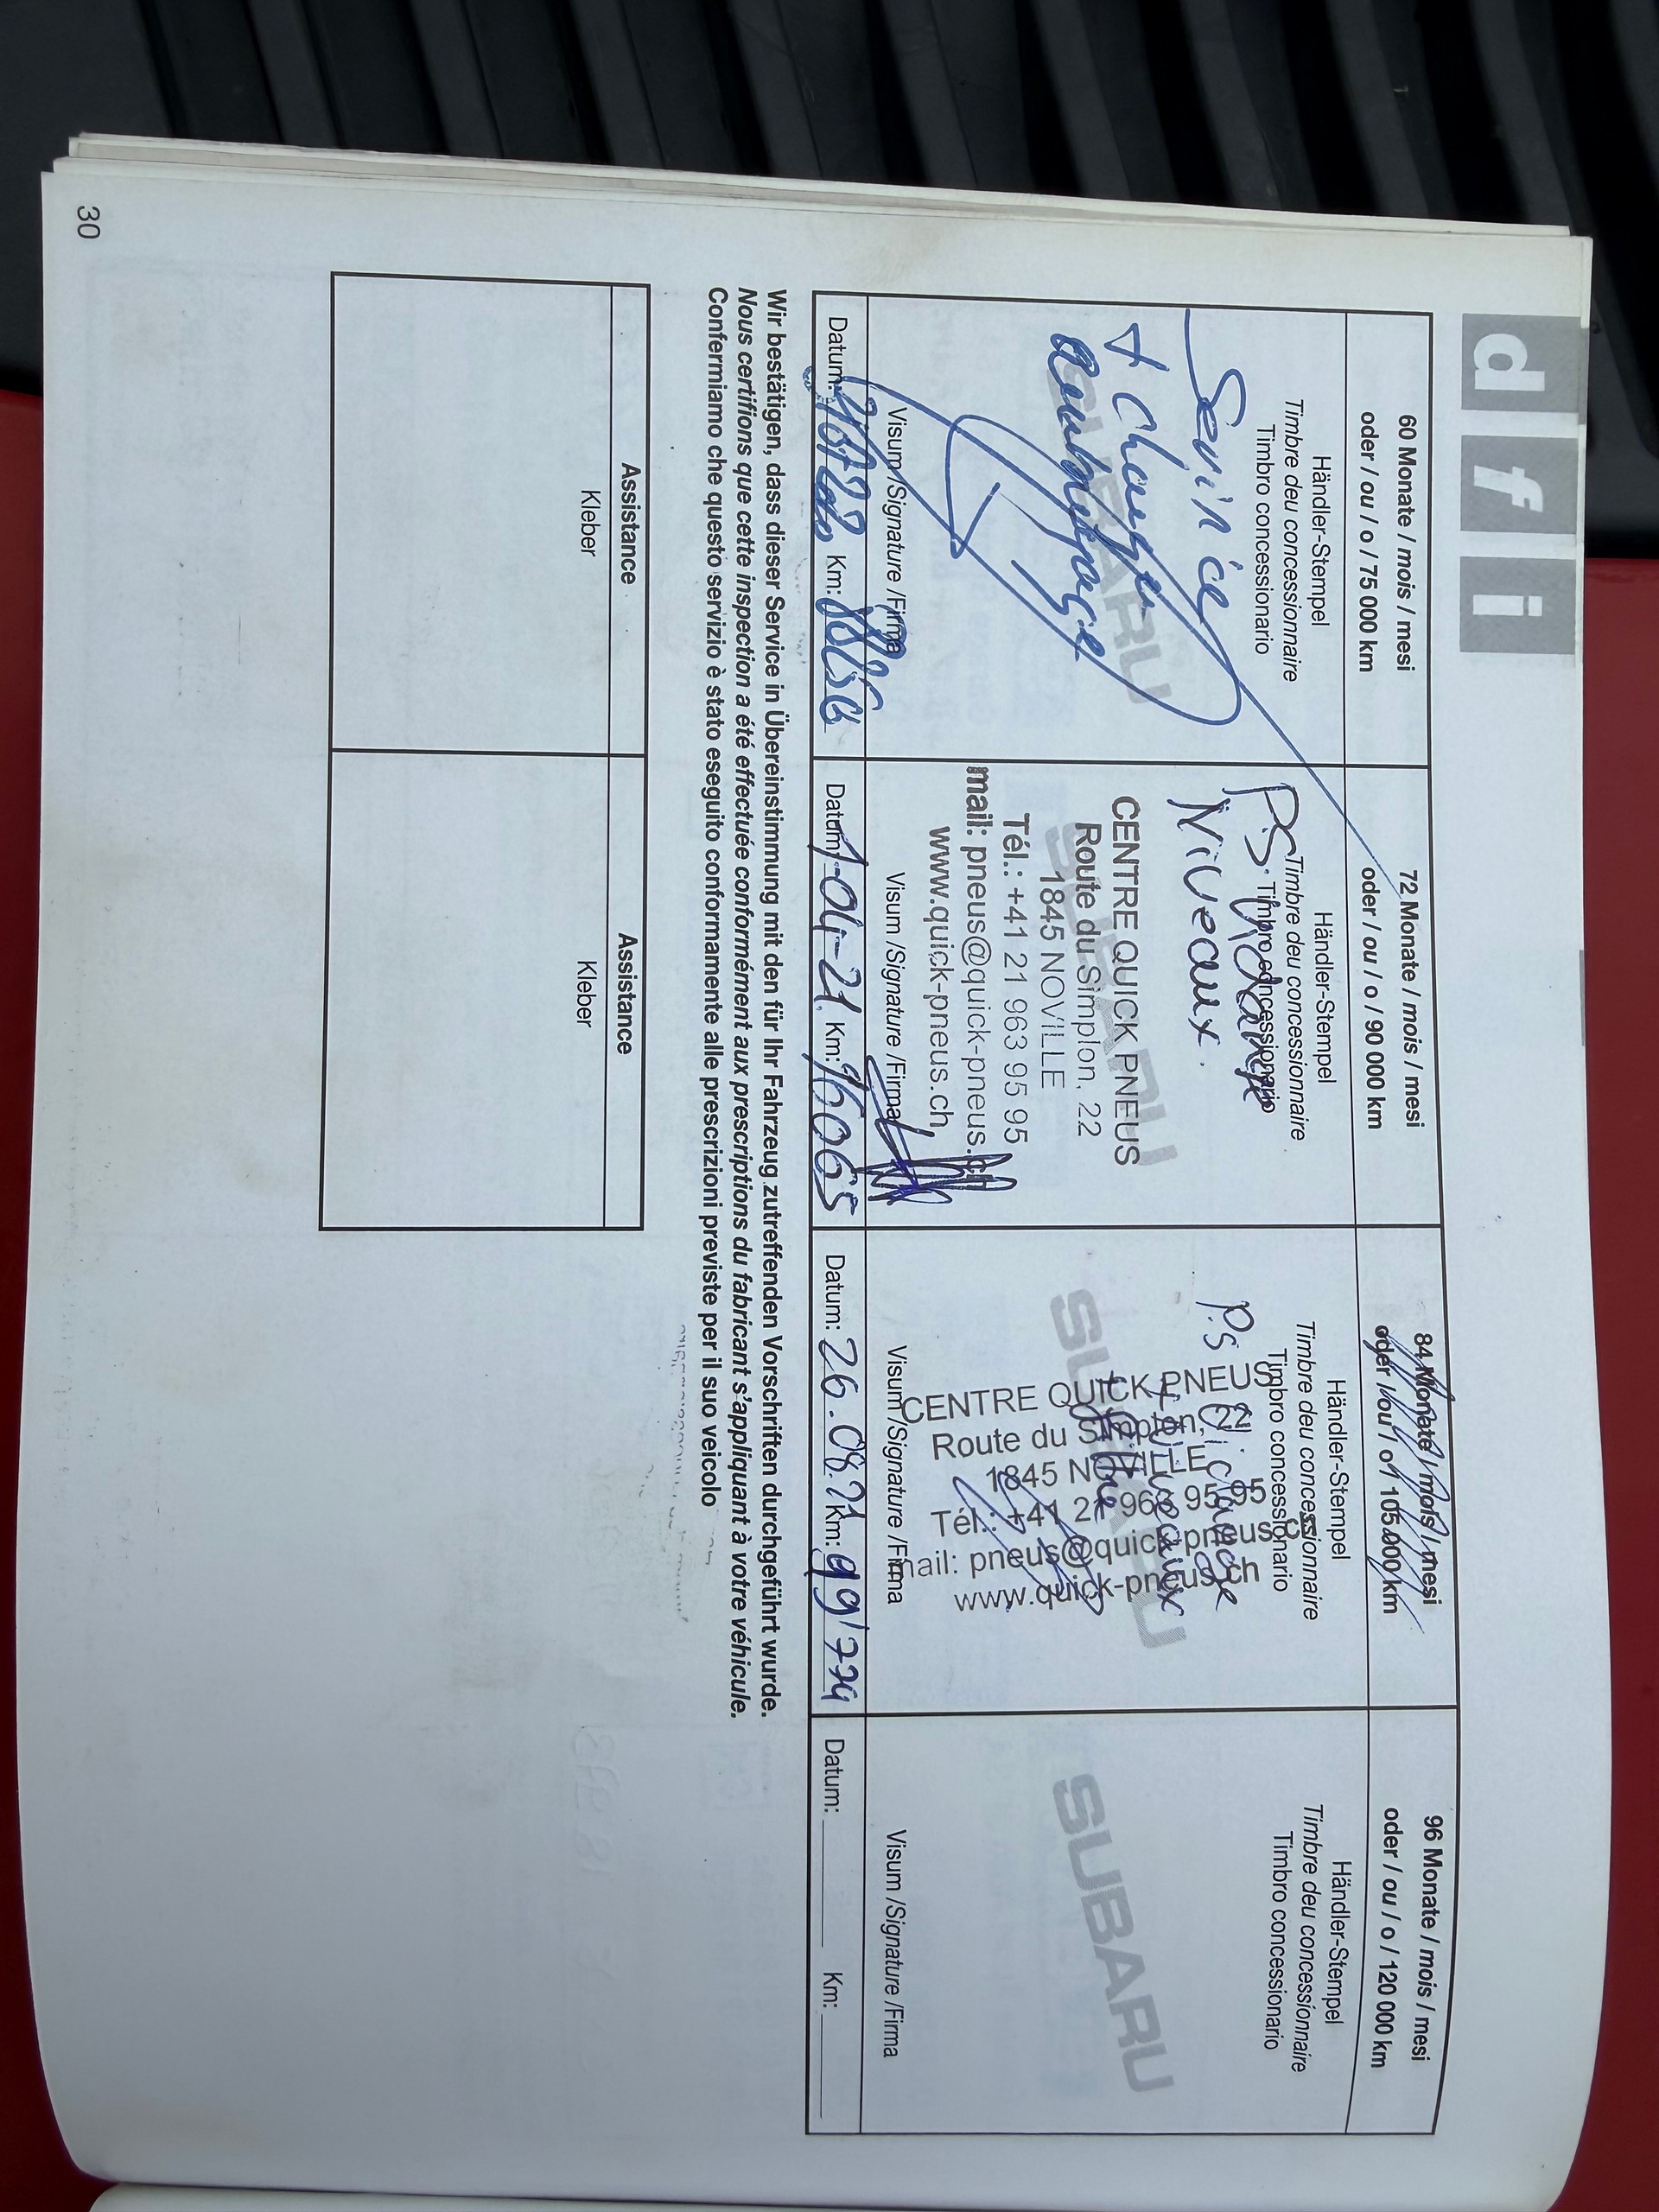 d f i
60 Monate / mois / mesi
oder / ou / o / 75 000 km
Händler-Stempel
Timbre deu concessionnaire
Timbro concessionario
Service
+ change
SUBARU
Visum /Signature /Firma
Datum:
Km:
72 Monate / mois / mesi
oder / ou / o / 90 000 km
Händler-Stempel
Timbre deu concessionnaire
Timbro concessionario
PS. Vidange
Niveaux.
SUBARU
CENTRE QUICK PNEUS
Route du Simplon, 22
1845 NOVILLE
Tél.: +41 21 963 95 95
mail: pneus@quick-pneus.ch
www.quick-pneus.ch
Visum /Signature /Firma
Datum: 1-04-21 Km: 96065
84 Monate / mois / mesi
oder / ou / o / 105 000 km
Händler-Stempel
Timbre deu concessionnaire
Timbro concessionario
P.S Vidange
+ Niveaux
SUBARU
CENTRE QUICK PNEUS
Route du Simplon, 22
1845 NOVILLE
Tél.: +41 21 963 95 95
mail: pneus@quick-pneus.ch
www.quick-pneus.ch
Visum /Signature /Firma
Datum: 26.08.21 Km: 99'774
96 Monate / mois / mesi
oder / ou / o / 120 000 km
Händler-Stempel
Timbre deu concessionnaire
Timbro concessionario
SUBARU
Visum /Signature /Firma
Datum: Km:
Wir bestätigen, dass dieser Service in Übereinstimmung mit den für Ihr Fahrzeug zutreffenden Vorschriften durchgeführt wurde.
Nous certifions que cette inspection a été effectuée conformément aux prescriptions du fabricant s'appliquant à votre véhicule.
Confermiamo che questo servizio è stato eseguito conformamente alle prescrizioni previste per il suo veicolo
Assistance
Kleber
Assistance
Kleber
30